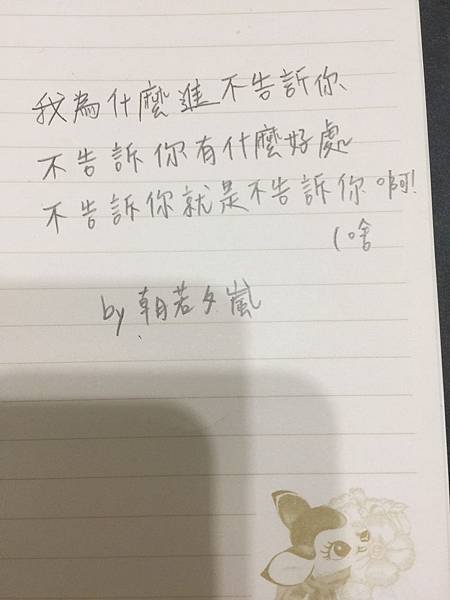 我為什麼進不告訴你
不告訴你有什麼好處
不告訴你就是不告訴你啊!
(啥
by 朝若夕嵐